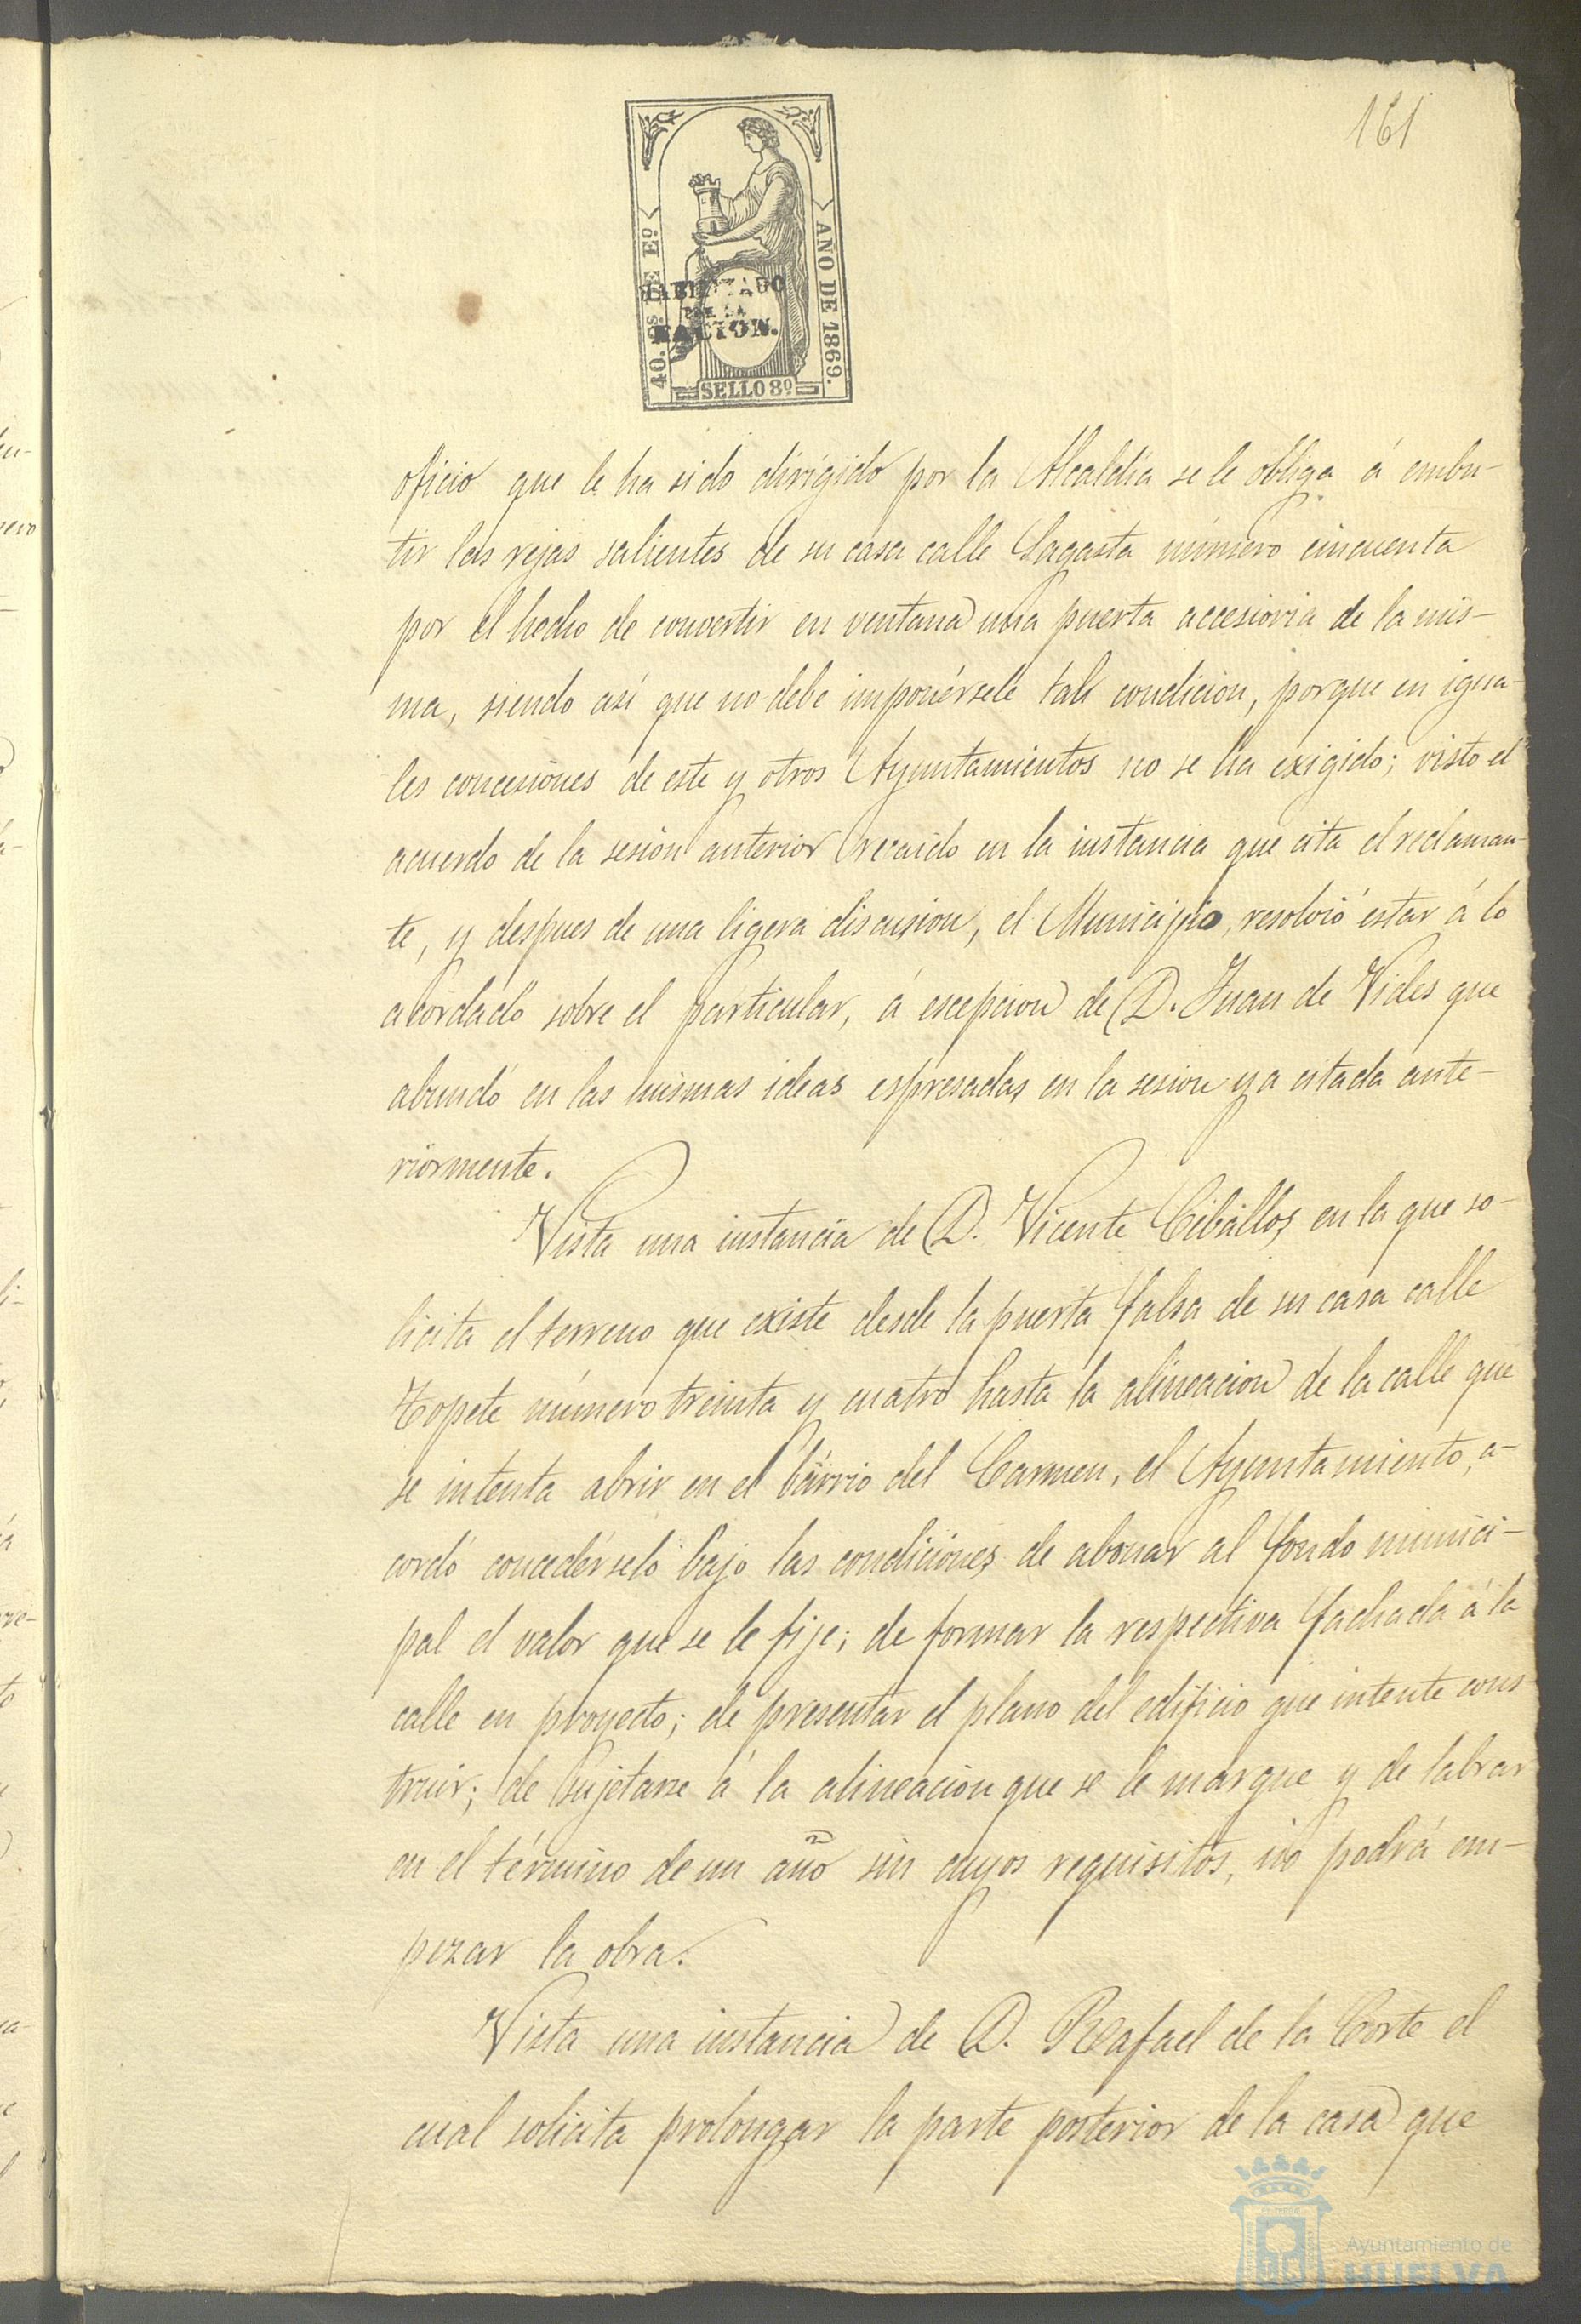 161
40. Cs. DE Eº
AÑO DE 1869.
HABILITADO
POR LA
NACION.
SELLO 8º
oficio que le ha sido dirigido por la Alcaldía se le obliga á embu-
tir las rejas salientes de su casa calle Sagasta número cincuenta
por el hecho de convertir en ventana una puerta accesioria de la mis-
ma, siendo así que no debe imponérsele tal condicion, porque en igua-
les concesiones de este y otros Ayuntamientos no se ha exigido; visto el
acuerdo de la sesion anterior recaido en la instancia que cita el reclaman-
te, y despues de una ligera discusion, el Municipio, resolvió estar á lo
acordado sobre el particular, á escepcion de D. Juan de Vides que
abundó en las mismas ideas espresadas en la sesion ya citada ante-
riormente.
Vista una instancia de D. Vicente Ceballos en la que so-
licita el terreno que existe desde la puerta falsa de su casa calle
Topete número treinta y cuatro hasta la alineacion de la calle que
se intenta abrir en el bárrio del Carmen, el Ayuntamiento, a-
cordó concedérselo bajo las condiciones de abonar al fondo munici-
pal el valor que se le fije; de formar la respectiva fachada á la
calle en proyecto; de presentar el plano del edificio que intente cons-
truir; de sujetarse á la alineacion que se le marque y de labrar
en el término de un año sin cuyos requisitos, no podrá em-
pezar la obra.
Vista una instancia de D. Rafael de la Corte el
cual solicita prolongar la parte posterior de la casa que
Ayuntamiento de
HUELVA